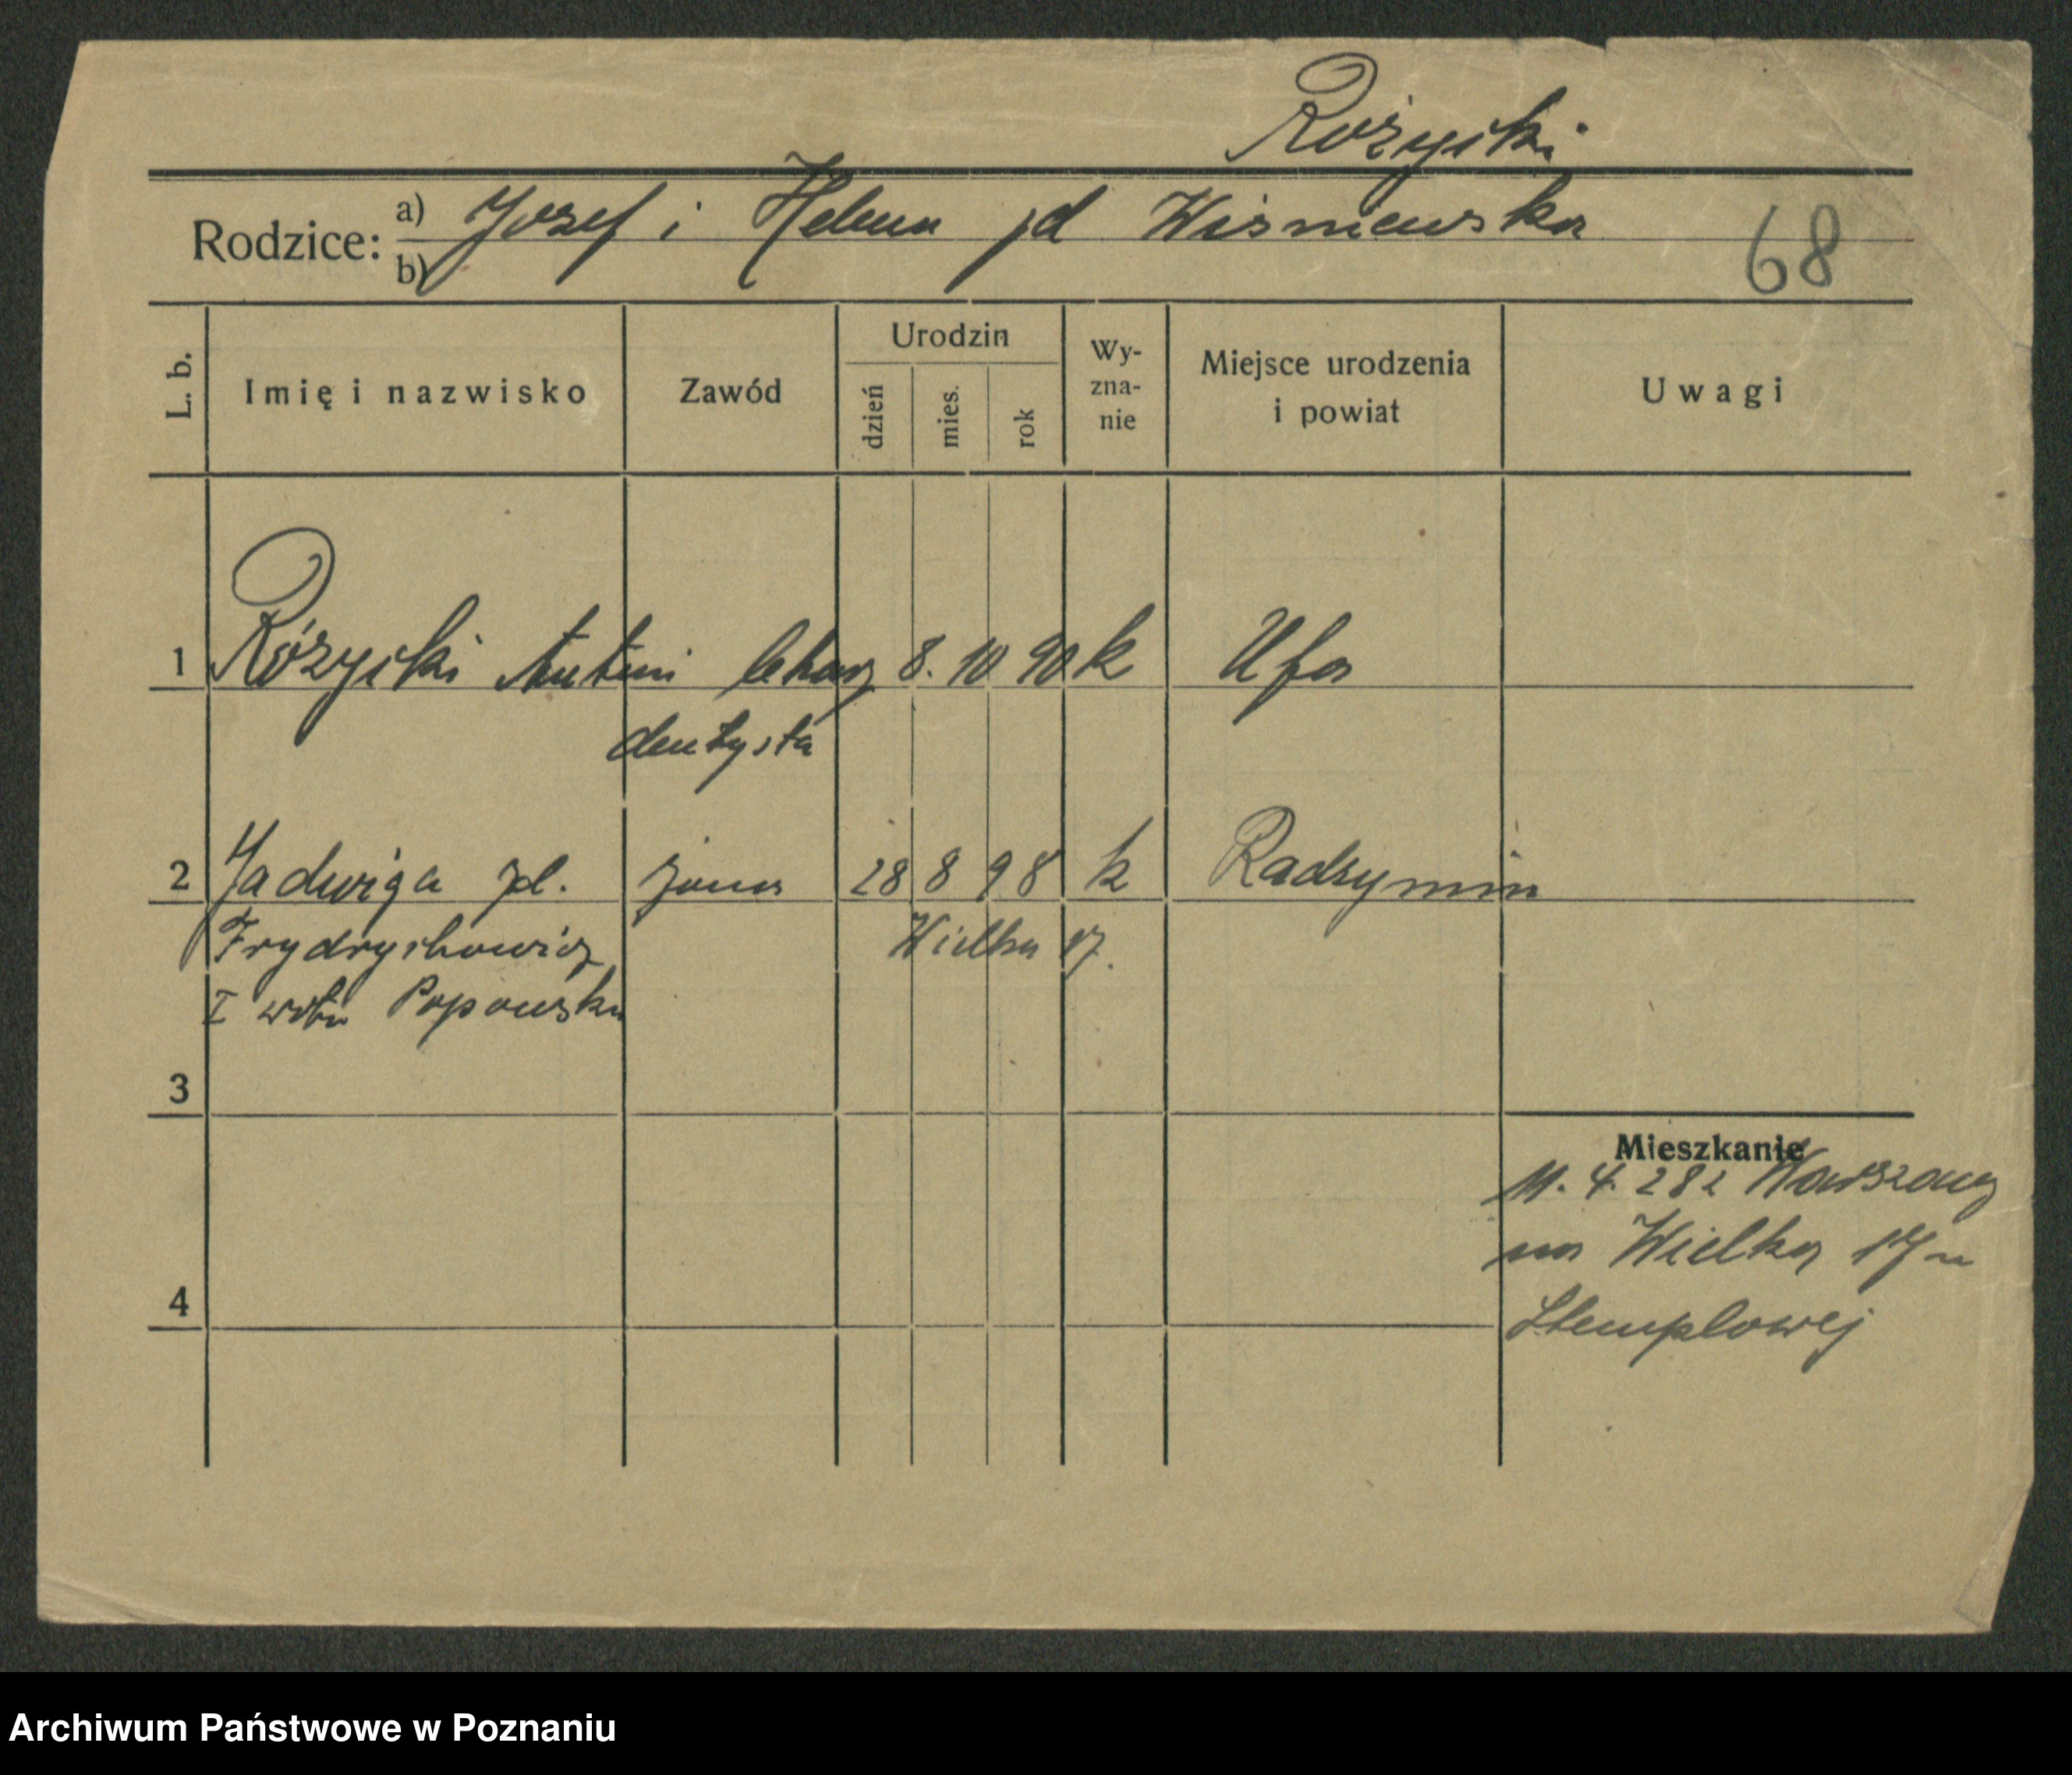 Różycki
Rodzice: a) Józef i Helena zd Wiśniewska
b)
68
L. b. Imię i nazwisko Zawód Urodzin dzień mies. rok Wy-zna-nie Miejsce urodzenia i powiat Uwagi
1 Różycki Antoni lekarz 8. 10 90 k Ufa
dentysta
2 Jadwiga zd. żona 28 8 98 k Radzymin
Frydrychowicz Wielka 17.
I voto Popowska
3
Mieszkanie
11. 4. 28 z Warszawy
na Wielką 17
4 Stemplowej
Archiwum Państwowe w Poznaniu